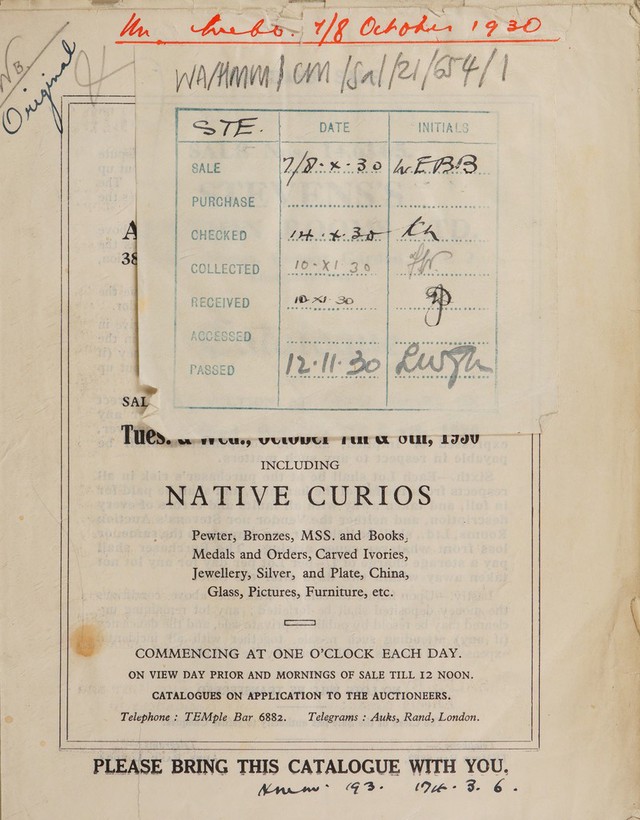 7/8 October 1930
Original
WA/HMM/CM/Sal/21/654/1
STE. DATE INITIALS
SALE 7/8.X.30 WEBB
PURCHASE
CHECKED 14.X.30
COLLECTED 10.XI.30
RECEIVED 10.XI.30
ACCESSED
PASSED 12.11.30
A
38
SAL
Tues. & Wed., October 7th & 8th, 1930
INCLUDING
NATIVE CURIOS
Pewter, Bronzes, MSS. and Books,
Medals and Orders, Carved Ivories,
Jewellery, Silver, and Plate, China,
Glass, Pictures, Furniture, etc.
COMMENCING AT ONE O'CLOCK EACH DAY.
ON VIEW DAY PRIOR AND MORNINGS OF SALE TILL 12 NOON.
CATALOGUES ON APPLICATION TO THE AUCTIONEERS.
Telephone : TEMple Bar 6882. Telegrams : Auks, Rand, London.
PLEASE BRING THIS CATALOGUE WITH YOU.
193. 174. 3. 6.